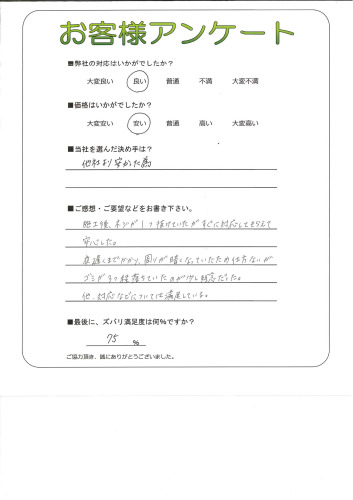 お客様アンケート
■弊社の対応はいかがでしたか？
大変良い 良い 普通 不満 大変不満
■価格はいかがでしたか？
大変安い 安い 普通 高い 大変高い
■当社を選んだ決め手は？
他社より安かった為
■ご感想・ご要望などをお書き下さい。
施工後、ネジが1つ抜けていたがすぐに対応してきてくれて
安心した。
夜遅くまでかかり、周りが暗くなっていたため仕方ないが
ゴミが3つ程落ちていたのが少し残念だった。
他、対応などについては満足している。
■最後に、ズバリ満足度は何%ですか？
75 %
ご協力頂き、誠にありがとうございました。